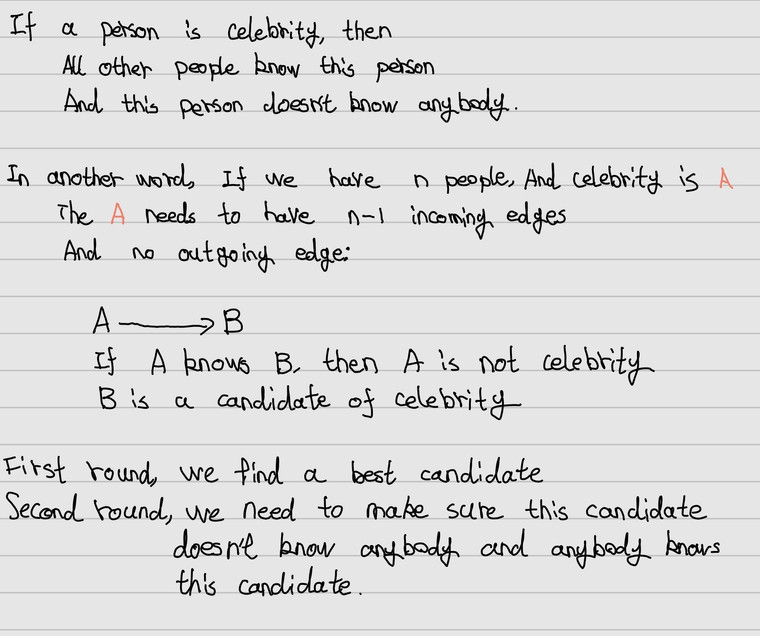 If a person is celebrity, then
All other people know this person
And this person doesn't know anybody.
In another word, If we have n people, And celebrity is A
The A needs to have n-1 incoming edges
And no outgoing edge:
A → B
If A knows B, then A is not celebrity
B is a candidate of celebrity
First round, we find a best candidate
Second round, we need to make sure this candidate
doesn't know anybody and anybody knows
this candidate.